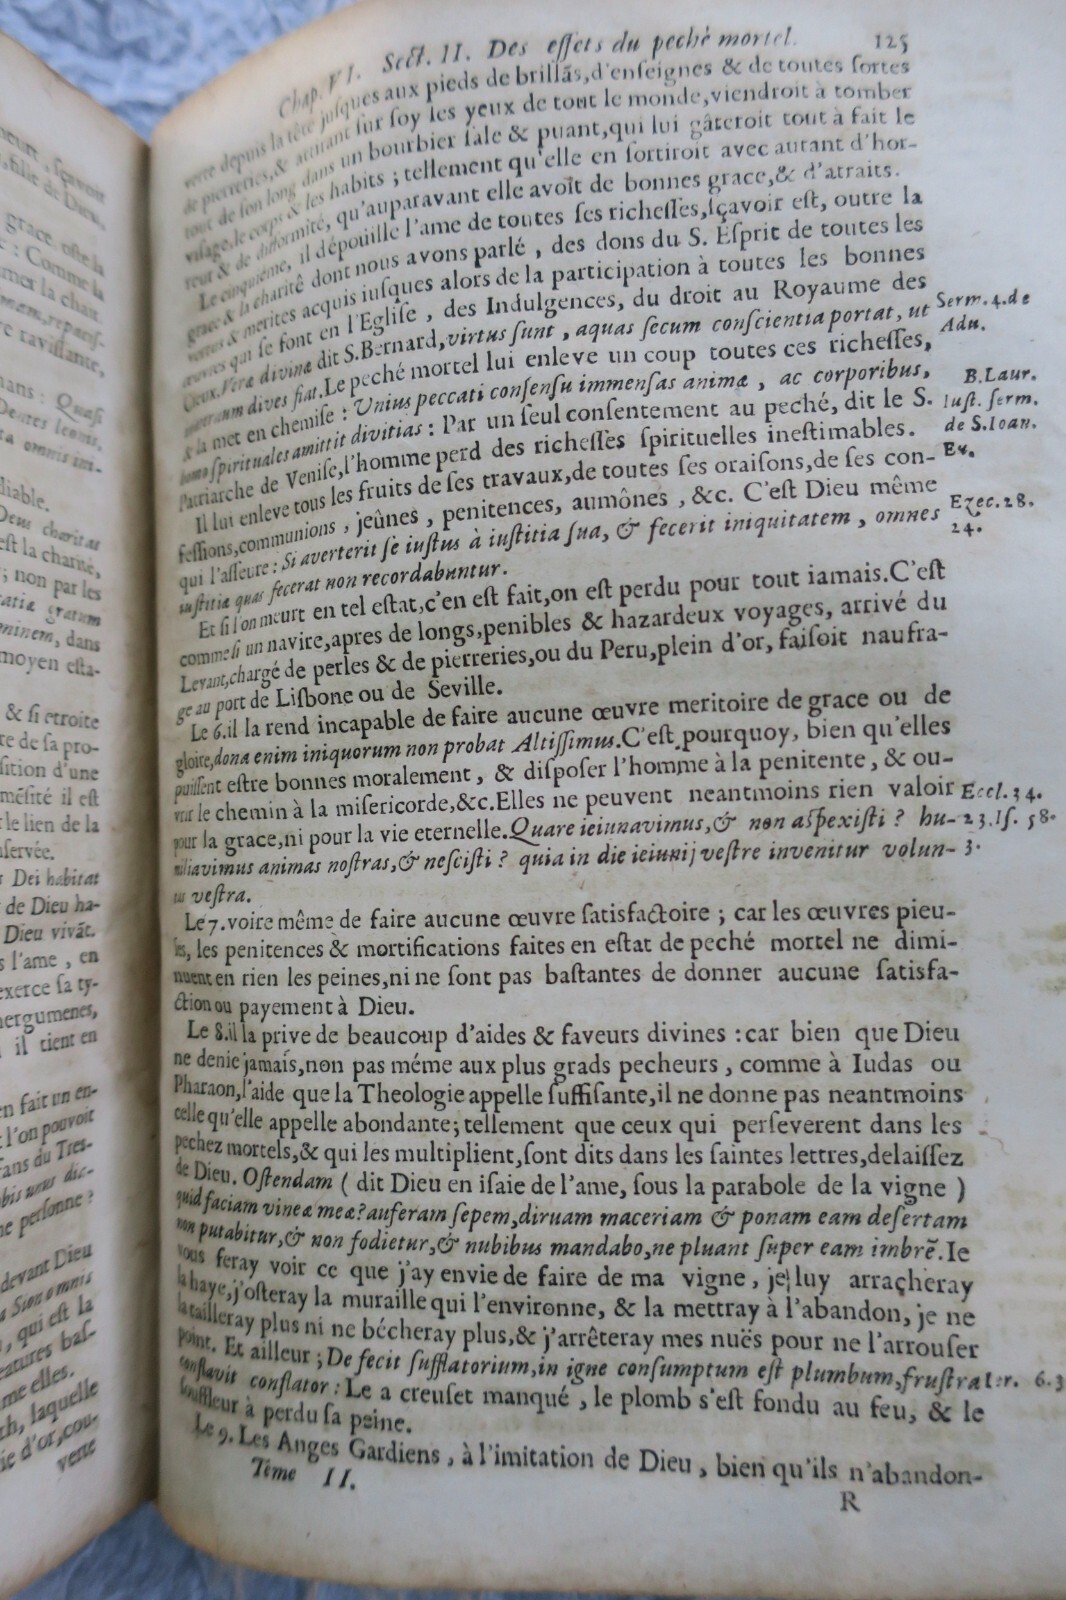 Chap. VI. Sect. II. Des effets du peché mortel. 125
verte depuis la tête jusques aux pieds de brillãs,d'enseignes & de toutes sortes
de pierreries,& attirant sur soy les yeux de tout le monde,viendroit à tomber
tout de son long dans un bourbier sale & puant,qui lui gâteroit tout à fait le
visage,le corps & les habits ; tellement qu'elle en sortiroit avec autant d'hor-
reur & de difformité, qu'auparavant elle avoit de bonnes grace,& d'atraits.
Le cinquiéme, il dépouille l'ame de toutes ses richesses,sçavoir est, outre la
grace & la charité dont nous avons parlé , des dons du S. Esprit de toutes les
vertus & merites acquis iusques alors de la participation à toutes les bonnes
œuvres qui se font en l'Eglise , des Indulgences, du droit au Royaume des
Cieux.Veræ divinæ dit S.Bernard,virtus sunt , aquas secum conscientia portat, ut
dives fiat.Le peché mortel lui enleve un coup toutes ces richesses,
& la met en chemise : Unius peccati consensu immensas animæ , ac corporibus,
homo spirituales amittit divitias : Par un seul consentement au peché, dit le S.
Patriarche de Venise,l'homme perd des richesses spirituelles inestimables.
Il lui enleve tous les fruits de ses travaux,de toutes ses oraisons,de ses con-
fessions,communions , jeûnes , penitences, aumônes , &c. C'est Dieu même
qui l'asseure : Si averterit se iustus à iustitia sua, & fecerit iniquitatem , omnes
iustitiæ quas fecerat non recordabuntur.
Et si l'on meurt en tel estat,c'en est fait,on est perdu pour tout iamais.C'est
comme si un navire,apres de longs,penibles & hazardeux voyages, arrivé du
Levant,chargé de perles & de pierreries,ou du Peru,plein d'or, faisoit naufra-
ge au port de Lisbone ou de Seville.
Le 6.il la rend incapable de faire aucune œuvre meritoire de grace ou de
gloire,dona enim iniquorum non probat Altissimus.C'est pourquoy, bien qu'elles
puissent estre bonnes moralement , & disposer l'homme à la penitente, & ou-
vrir le chemin à la misericorde,&c.Elles ne peuvent neantmoins rien valoir
pour la grace,ni pour la vie eternelle.Quare ieiunavimus,& non aspexisti ? hu-
miliavimus animas nostras,& nescisti ? quia in die ieiunij vestre invenitur volun-
tas vestra.
Le 7.voire même de faire aucune œuvre satisfactoire ; car les œuvres pieu-
ses, les penitences & mortifications faites en estat de peché mortel ne dimi-
nuent en rien les peines,ni ne sont pas bastantes de donner aucune satisfa-
ction ou payement à Dieu.
Le 8.il la prive de beaucoup d'aides & faveurs divines : car bien que Dieu
ne denie jamais,non pas méme aux plus grads pecheurs, comme à Iudas ou
Pharaon,l'aide que la Theologie appelle suffisante,il ne donne pas neantmoins
celle qu'elle appelle abondante; tellement que ceux qui perseverent dans les
pechez mortels,& qui les multiplient,sont dits dans les saintes lettres,delaissez
de Dieu. Ostendam ( dit Dieu en isaie de l'ame, sous la parabole de la vigne )
quid faciam vineæ meæ? auferam sepem,diruam maceriam & ponam eam desertam
non putabitur,& non fodietur,& nubibus mandabo,ne pluant super eam imbrẽ.Ie
vous feray voir ce que j'ay envie de faire de ma vigne , je luy arraçheray
la haye,j'osteray la muraille qui l'environne, & la mettray à l'abandon, je ne
la tailleray plus ni ne bécheray plus,& j'arrêteray mes nuës pour ne l'arrouser
point. Et ailleur ; Defecit sufflatorium,in igne consumptum est plumbum,frustra
conflavit conflator : Le a creuset manqué , le plomb s'est fondu au feu, & le
souffleur à perdu sa peine.
Le 9. Les Anges Gardiens , à l'imitation de Dieu , bien qu'ils n'abandon-
Tome II.
R
Serm. 4. de
Adu.
B. Laur.
Iust. serm.
de S. Ioan.
Ev.
Ezec. 28.
24.
Eccl. 34.
23. Is. 58.
3.
Ier. 6.3